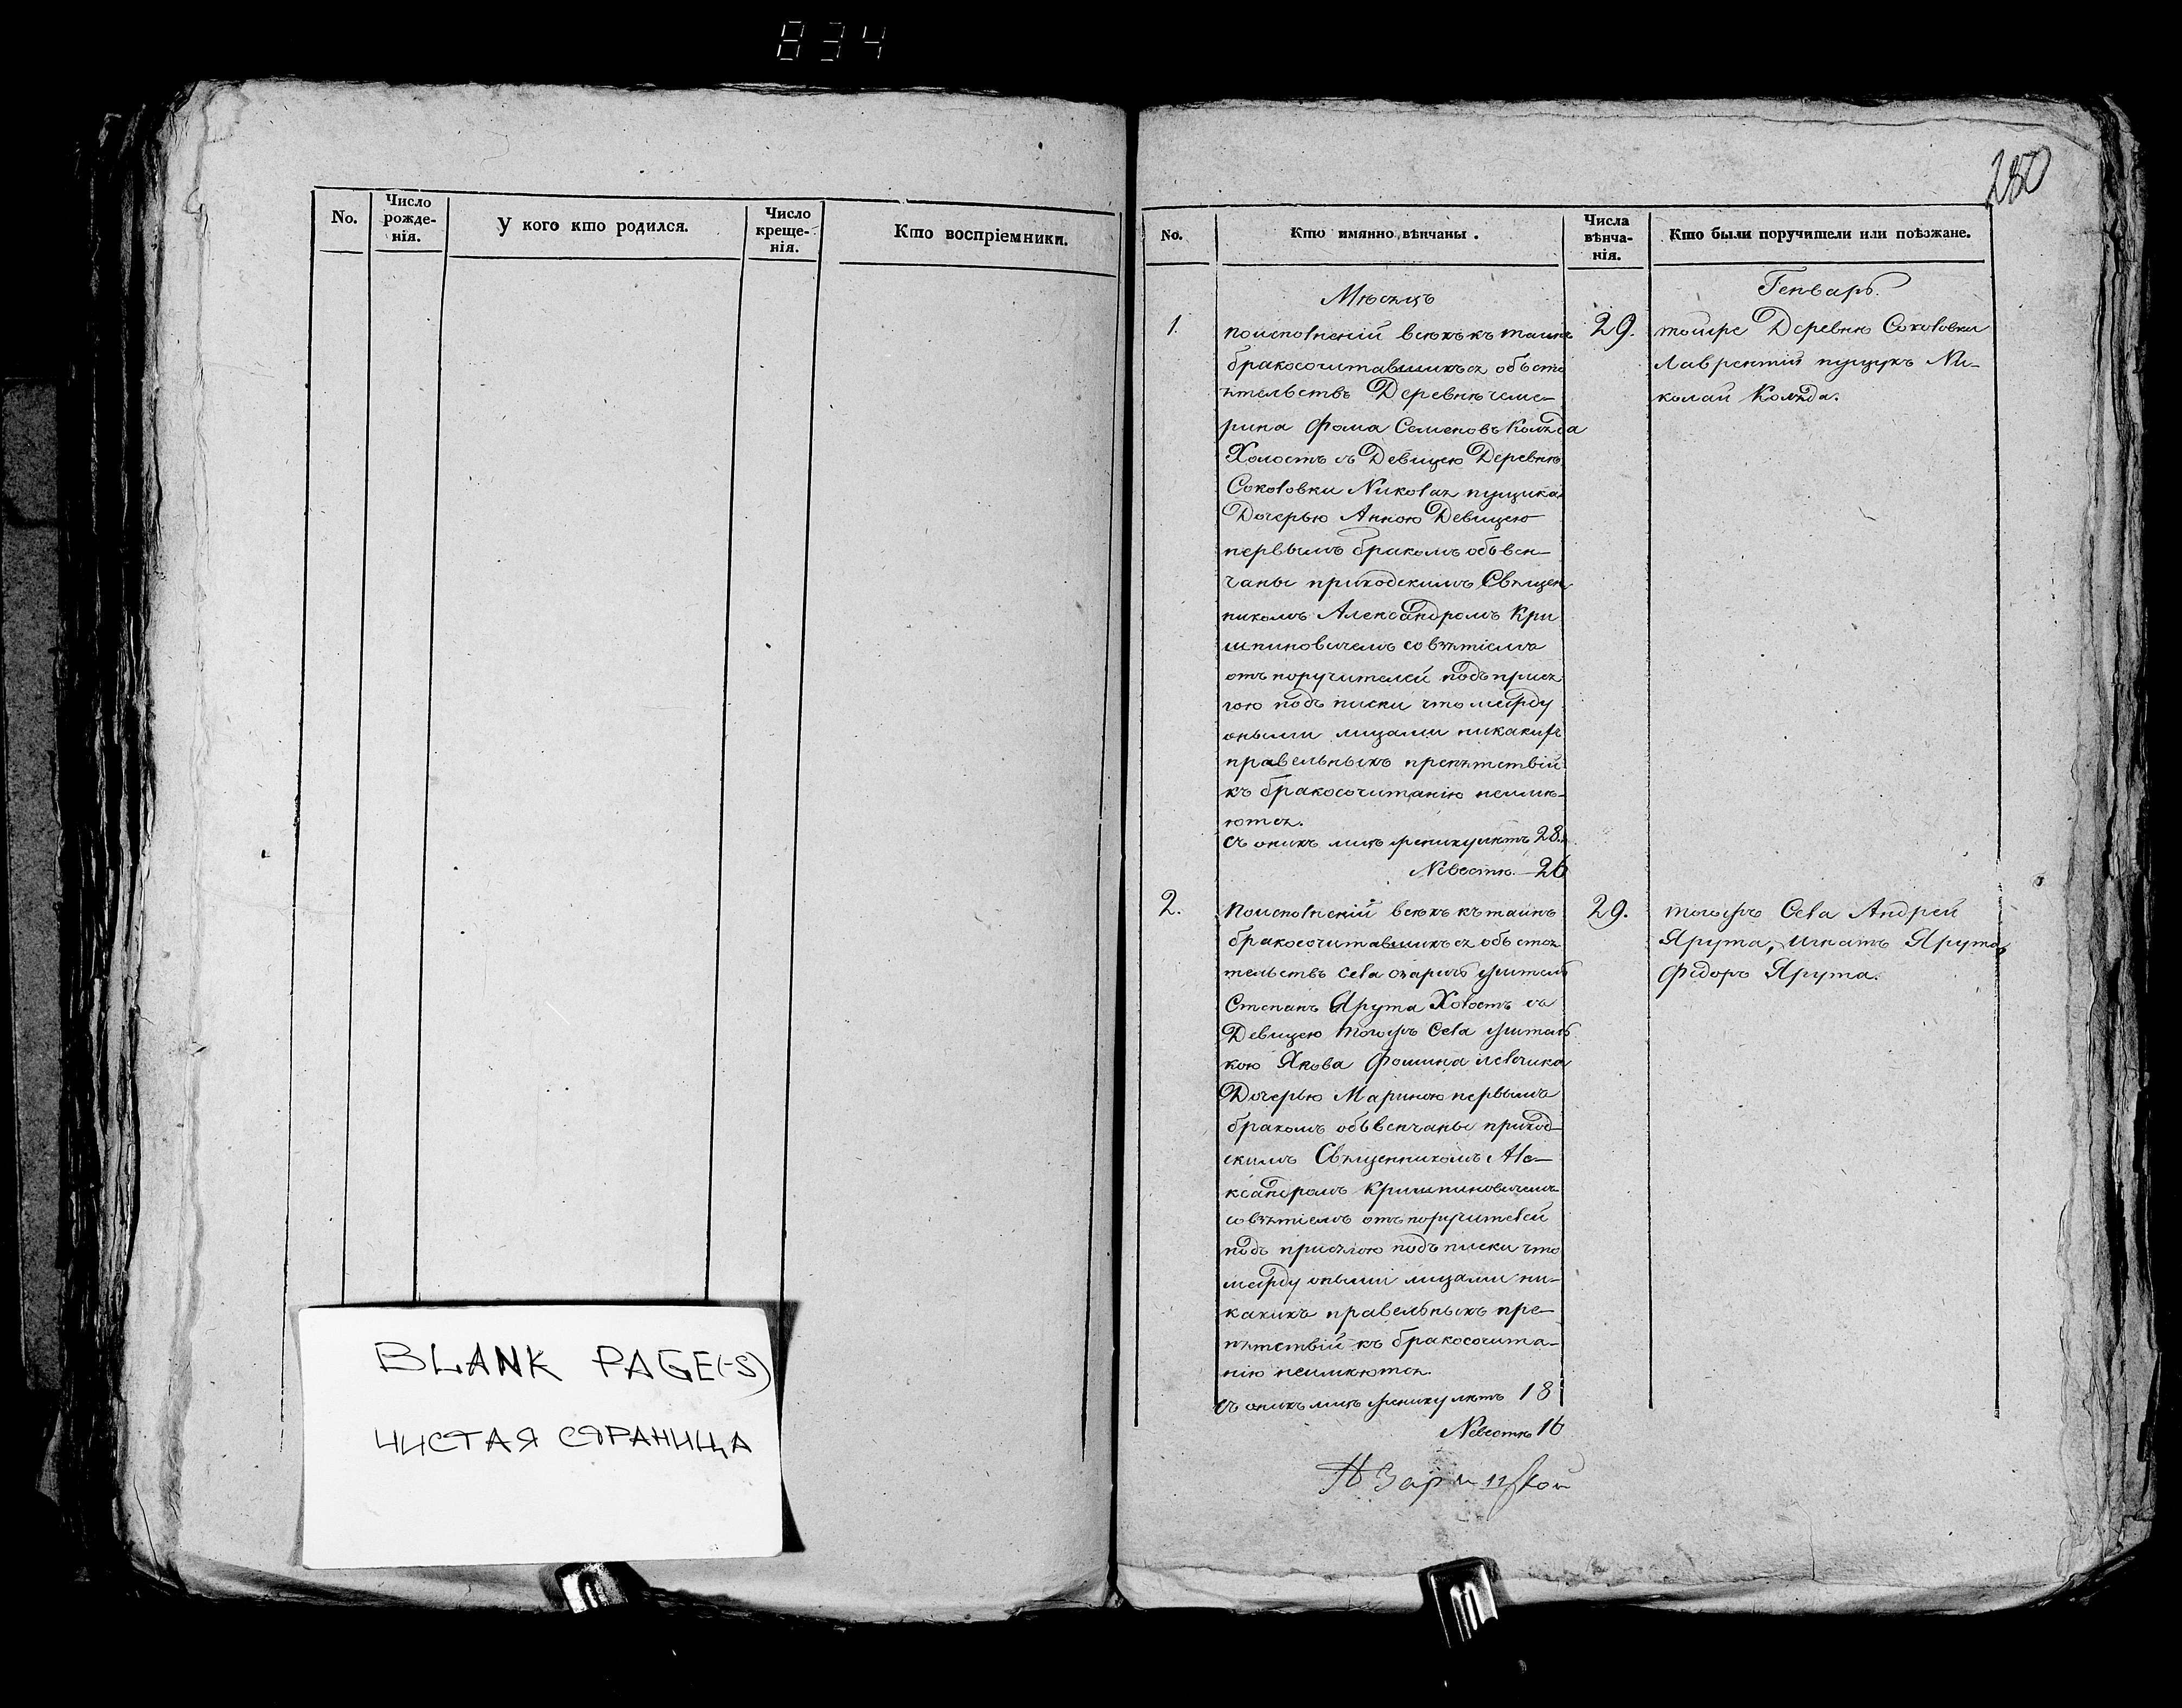 834
No.
Число рожде-нія.
У кого кто родился.
Число креще-нія.
Кто воспріемники.
BLANK PAGE(-S)
ЧИСТАЯ СТРАНИЦА
280
No.
Кто имянно вѣнчаны.
Числа вѣнча-нія.
Кто были поручители или поѣзжане.
Мѣсяцъ
Генварь.
1.
поисполненій всѣхъ къ таинѣ
бракосочитавшихся обьсто
ятельствъ Деревнѣ чеме-
рина Фома Семеновъ Коляда
Холостъ съ Девицею Деревнѣ
Соколовки Николая пущика
Дочерью Анною Девицею
первымъ бракомъ объвен-
чаны приходскимъ Священ
никомъ Александромъ Кри
шпиновичемъ совзятіемъ
отъ поручителей подъ прися
гою подъ писки что между
оными лицами никакихъ
правельныхъ препятствій
къ бракосочитанію неимѣ-
ются.
Съ онихъ лицъ жениху лѣтъ 28.
Невестѣ — 26
29.
тойже Деревнѣ Соколовки
Лаврентий пущукъ Ни-
колай Коляда.
2.
Поисполненій всѣхъ къ таинѣ
бракосочитавшихся объстоя
тельствъ села озаричъ житель
Степанъ Ярута Холостъ съ
Девицею тогожъ Села житель
кою Якова Фомина левчика
Дочерью Мариною первымъ
бракомъ объвенчаны приход-
скимъ Священникомъ Але-
ксандромъ Кришпиновичемъ
совзятіемъ отъ поручителей
подъ присягою подъ писки что
между оными лицами ни-
какихъ правельныхъ пре-
пятствій къ бракосочита-
нію неимѣются.
Съ онихъ лицъ жениху лѣтъ 18
Невестѣ 16
29.
тогожъ Села Андрей
Ярута, Игнатъ Ярута,
Федоръ Ярута.